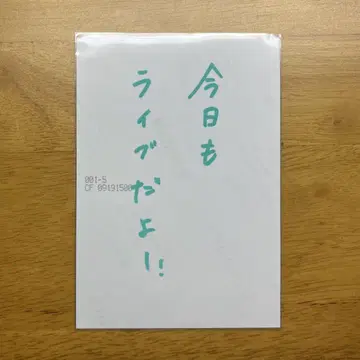 今日も
ライブだよー!!
001-5